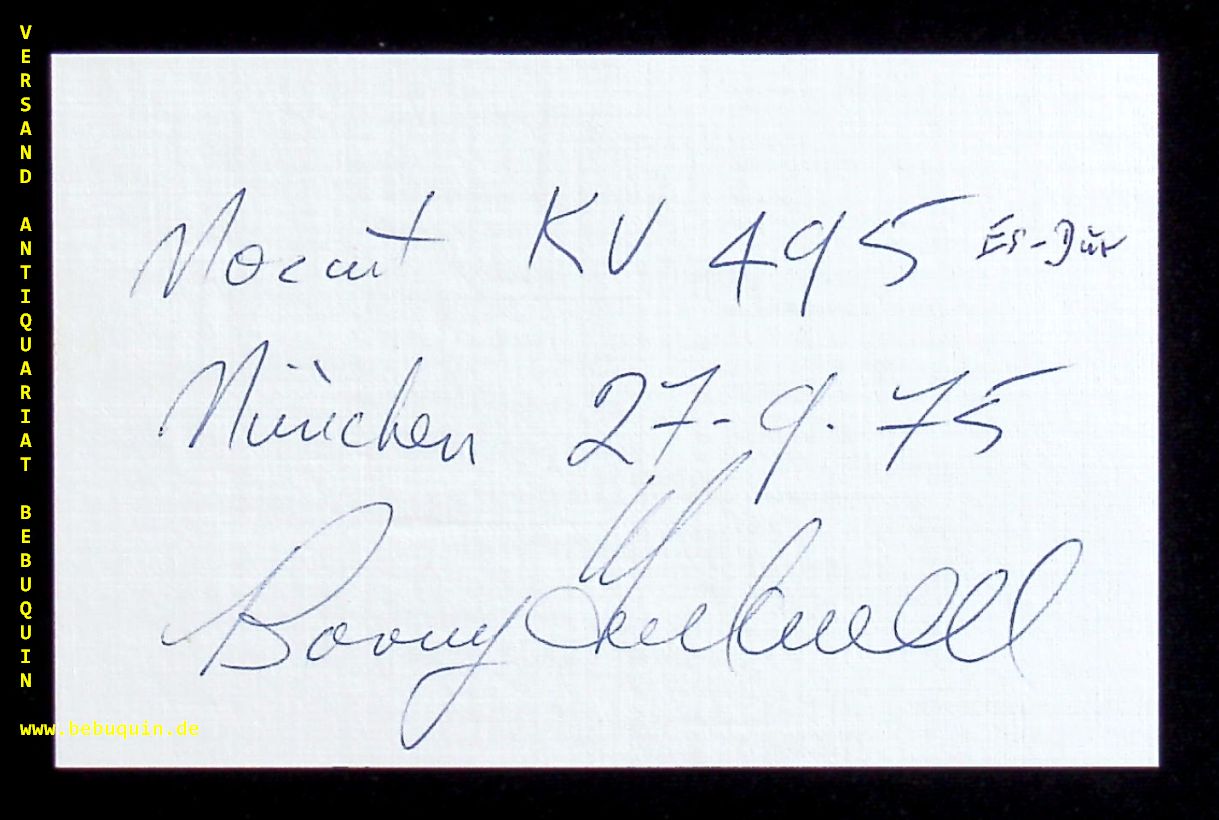 VERSAND ANTIQUARIAT BEBUQUIN
Mozart KV 495 Es-Dur
München 27-9.75
Barry Tuckwell
www.bebuquin.de